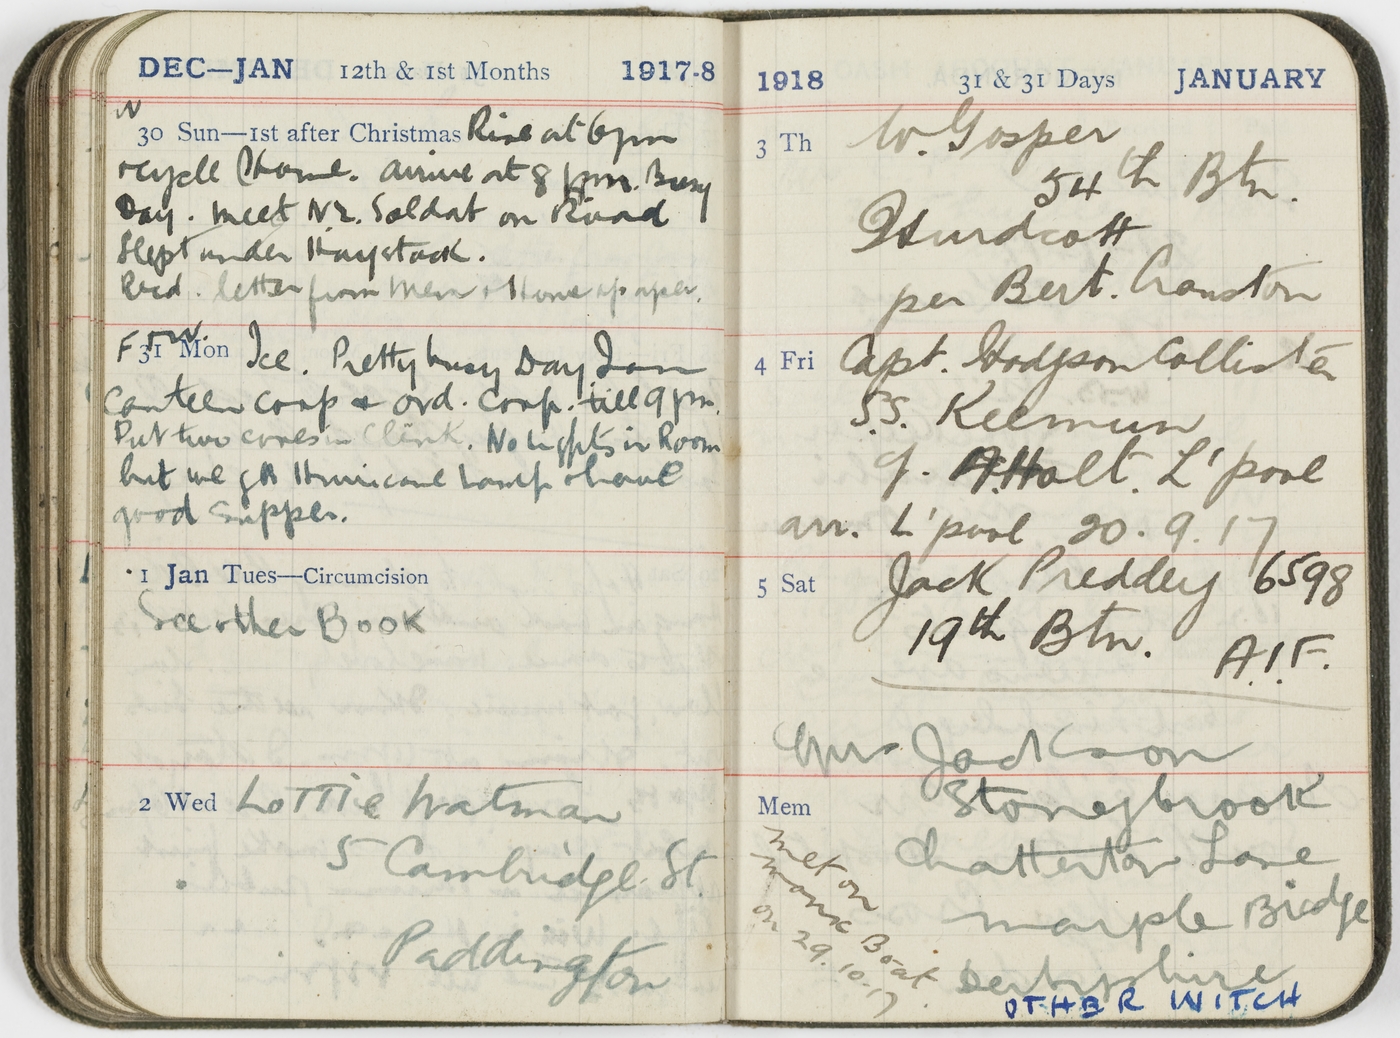 DEC—JAN 12th & 1st Months 1917-8
N
30 Sun—1st after Christmas Rise at 6pm
+cycle home. arrive at 8 pm. Busy
Day. meet Nr. Soldat on Road
Slept under Haystack.
Recd. letter from Mem + Home paper.
F
31 Mon Ice. Pretty busy Day
Canteen comp + ord. Comp. till 9 pm.
Put two cones in Clink. No lights in Room
but we get Hurricane Lamp + have
good supper.
1 Jan Tues—Circumcision
See other Book
2 Wed Lottie Watman
5 Cambridge St.
Paddington
1918 31 & 31 Days JANUARY
3 Th W. Gosper
54th Btn.
Hurdcott
per Bert. Cranston
4 Fri Capt. Hodgson Collister
S.S. Keemun
of. Holt. L'pool
arr. L'pool 20.9.17
5 Sat Jack Preddey 6598
19th Btn. A.I.F.
Mrs Jackson
Mem Stoneybrook
Chatterton Lane
Marple Bridge
Derbyshire
met on
manx Boat
on 29.10.17
OTHER WITCH